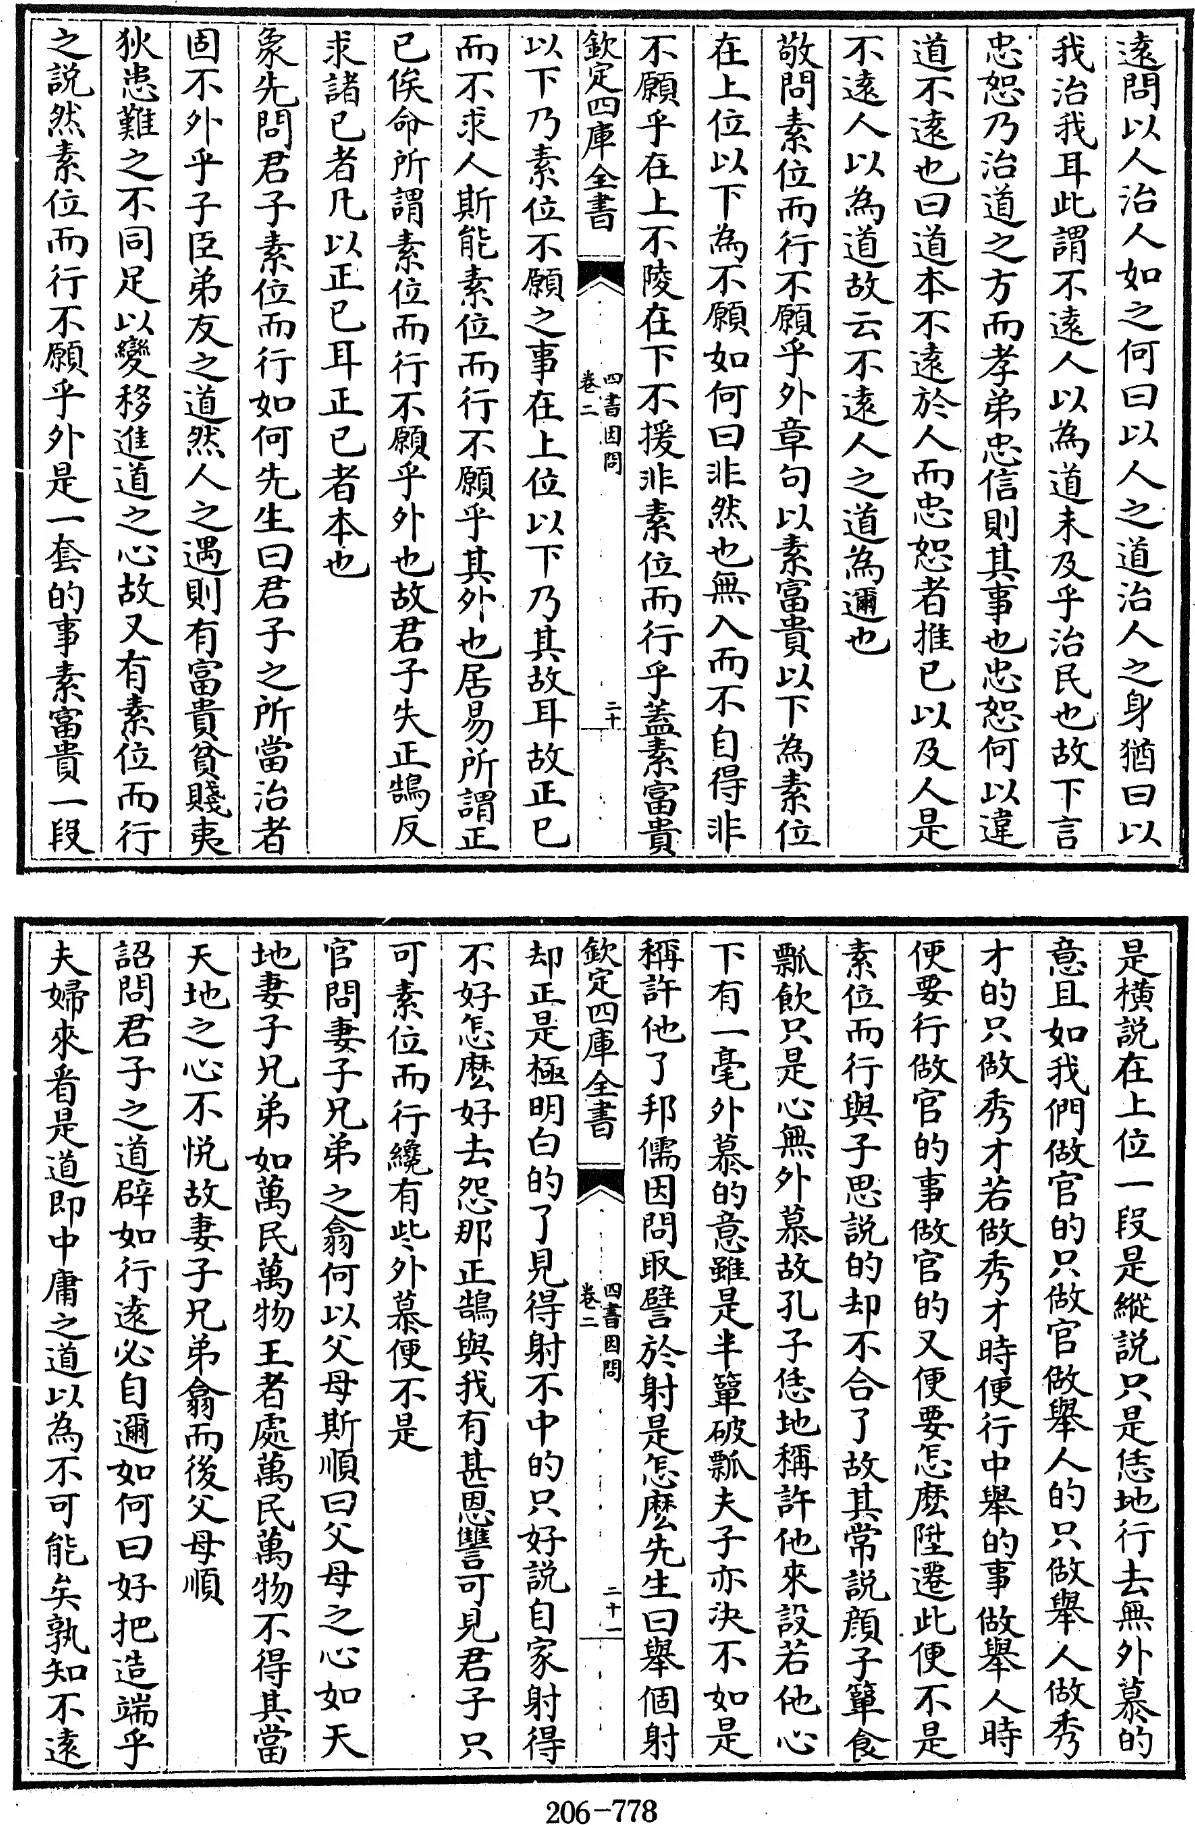 遠問以人治人如之何曰以人之道治人之身猶曰以
我治我耳此謂不遠人以為道未及乎治民也故下言
忠恕乃治道之方而孝弟忠信則其事也忠恕何以違
道不遠也曰道本不遠於人而忠恕者推已以及人是
不遠人以為道故云不遠人之道為邇也
敬問素位而行不願乎外章句以素富貴以下為素位
在上位以下為不願如何曰非然也無入而不自得非
不願乎在上不陵在下不援非素位而行乎蓋素富貴
欽定四庫全書
四書因問
卷二
二十
以下乃素位不願之事在上位以下乃其故耳故正已
而不求人斯能素位而行不願乎其外也居易所謂正
已俟命所謂素位而行不願乎外也故君子失正鵠反
求諸已者凡以正已耳正已者本也
象先問君子素位而行如何先生曰君子之所當治者
固不外乎子臣弟友之道然人之遇則有富貴貧賤夷
狄患難之不同足以變移進道之心故又有素位而行
之說然素位而行不願乎外是一套的事素富貴一段
是橫說在上位一段是縱說只是恁地行去無外慕的
意且如我們做官的只做官做舉人的只做舉人做秀
才的只做秀才若做秀才時便行中舉的事做舉人時
便要行做官的事做官的又便要怎麽陞遷此便不是
素位而行與子思說的却不合了故其常說顔子簞食
瓢飲只是心無外慕故孔子恁地稱許他來設若他心
下有一毫外慕的意雖是半簞破瓢夫子亦決不如是
稱許他了邦儒因問取譬於射是怎麽先生曰舉個射
欽定四庫全書
四書因問
卷二
二十一
却正是極明白的了見得射不中的只好說自家射得
不好怎麽好去怨那正鵠與我有甚恩讐可見君子只
可素位而行纔有些外慕便不是
官問妻子兄弟之翕何以父母斯順曰父母之心如天
地妻子兄弟如萬民萬物王者處萬民萬物不得其當
天地之心不悅故妻子兄弟翕而後父母順
詔問君子之道辟如行遠必自邇如何曰好把造端乎
夫婦來看是道即中庸之道以為不可能矣孰知不遠
206-778